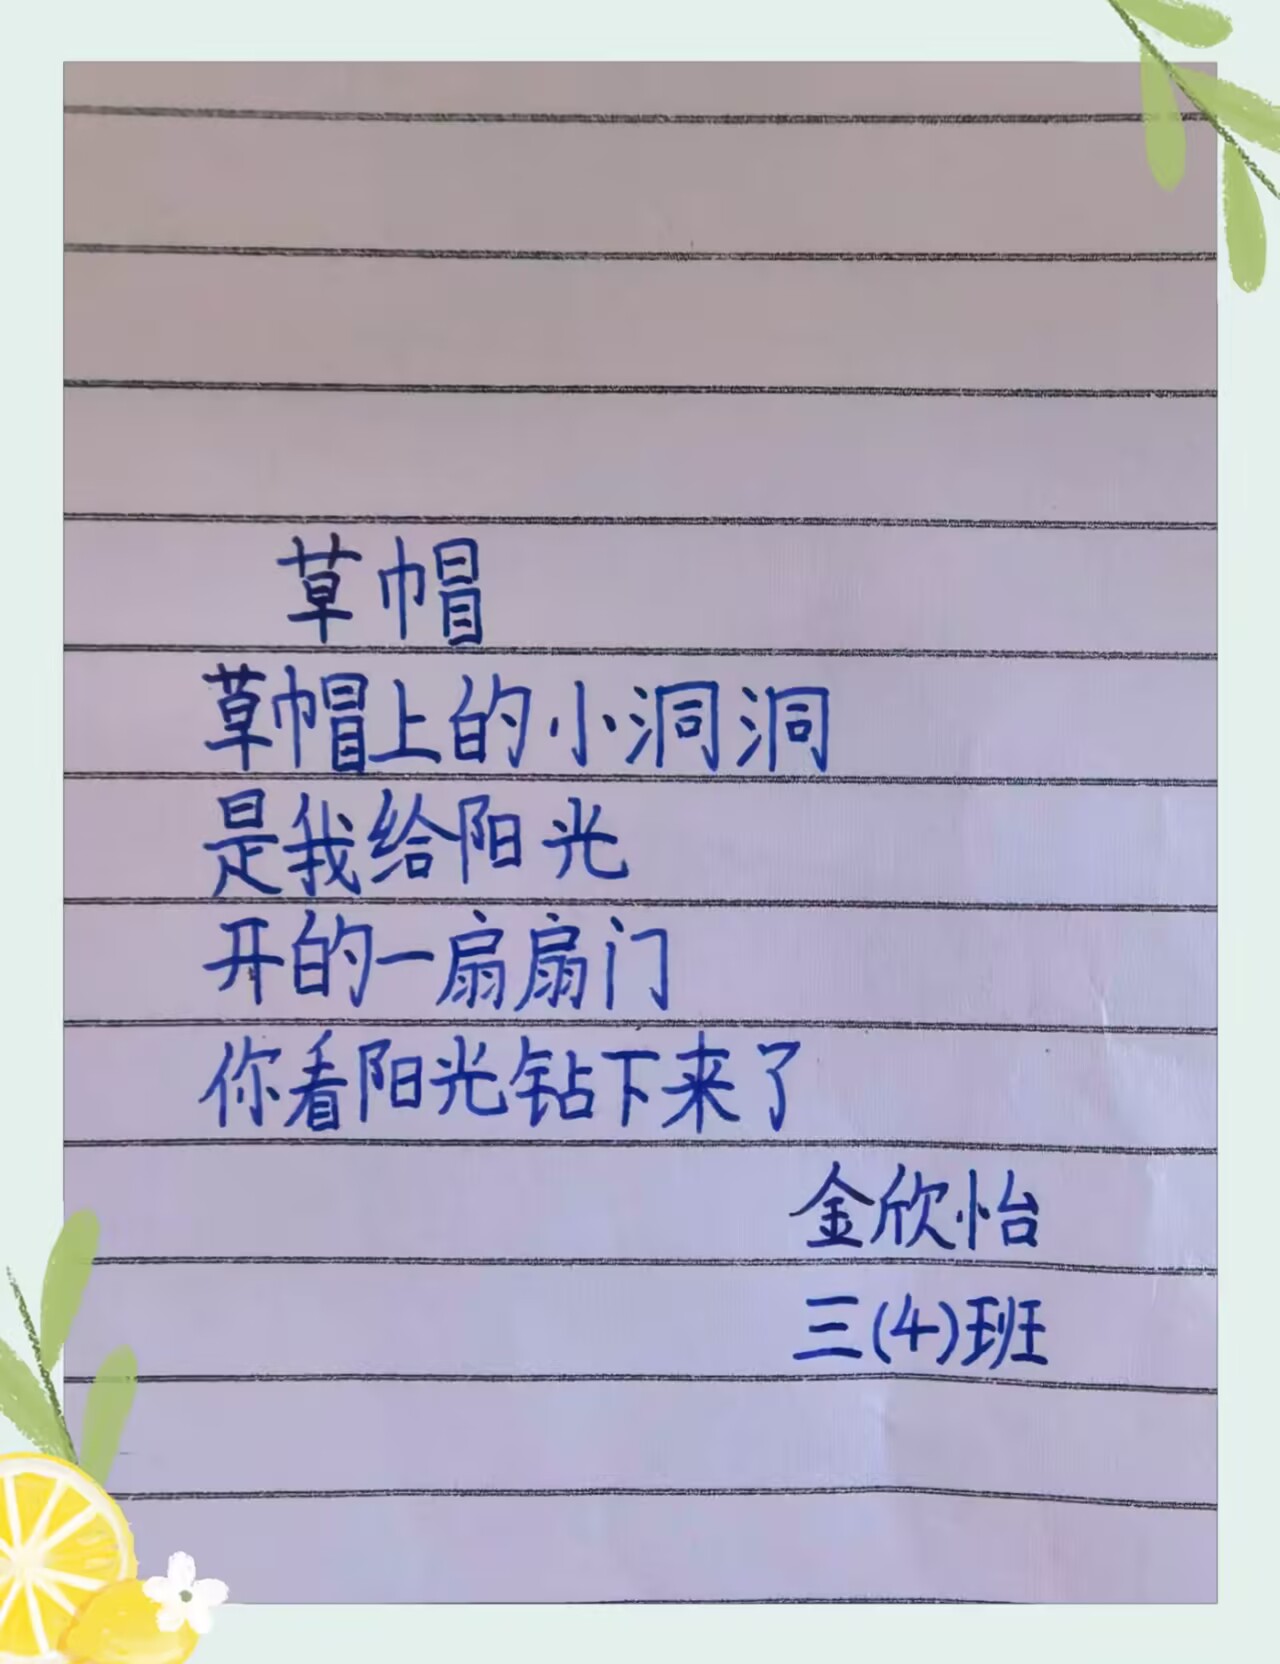 草帽
草帽上的小洞洞
是我给阳光
开的一扇扇门
你看阳光钻下来了
金欣怡
三(4)班